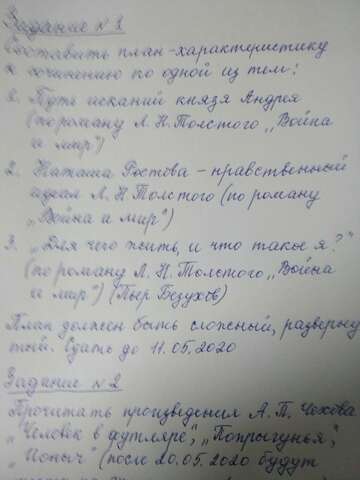 Задание № 1
Составить план-характеристику
к сочинению по одной из тем:
1. Путь исканий князя Андрея
(по роману Л. Н. Толстого „Война
и мир")
2. Наташа Ростова – нравственный
идеал Л. Н Толстого (по роману
„Война и мир")
3. „Для чего жить, и что такое я?"
(по роману Л. Н. Толстого „Война
и мир") (Пьер Безухов)
План должен быть сложный, разверну
тый. Сдать до 11.05.2020
Задание № 2
Прочитать произведения А. П. Чехова
„Человек в футляре", „Попрыгунья",
„Ионыч" (после 20.05.2020 будут